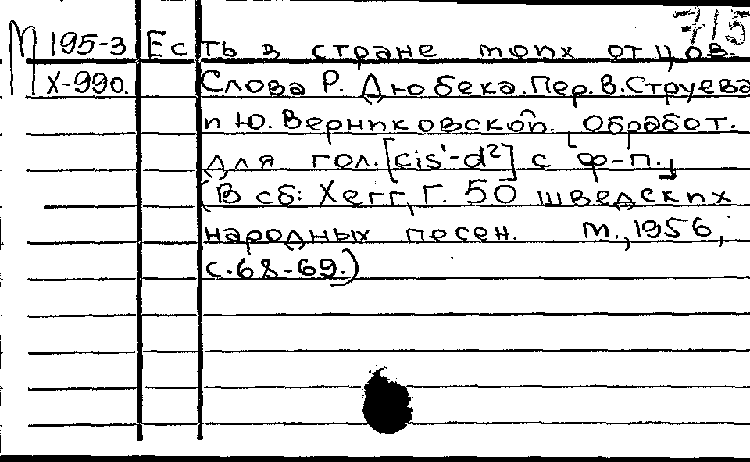 715
М 195-3 Есть в стране моих отцов.
Х-990. Слова Р. Дюбека. Пер. В. Струева
и Ю. Верниковской. Обработ.
для гол. [cis¹-d²] с ф-п.
(В сб: Хегг, Г. 50 шведских
народных песен. М., 1956,
с. 68-69.)